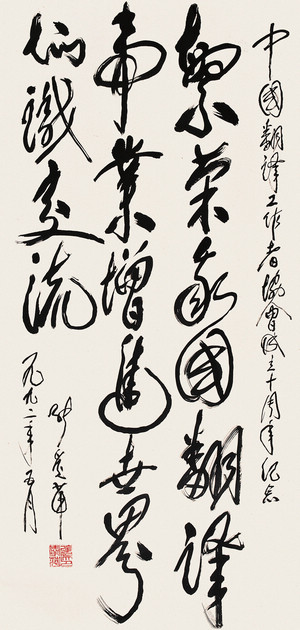 中國翻譯工作者協會成立十周年紀念
繁荣我國翻譯
事業增進世界
知識交流
張愛萍
一九九二年五月